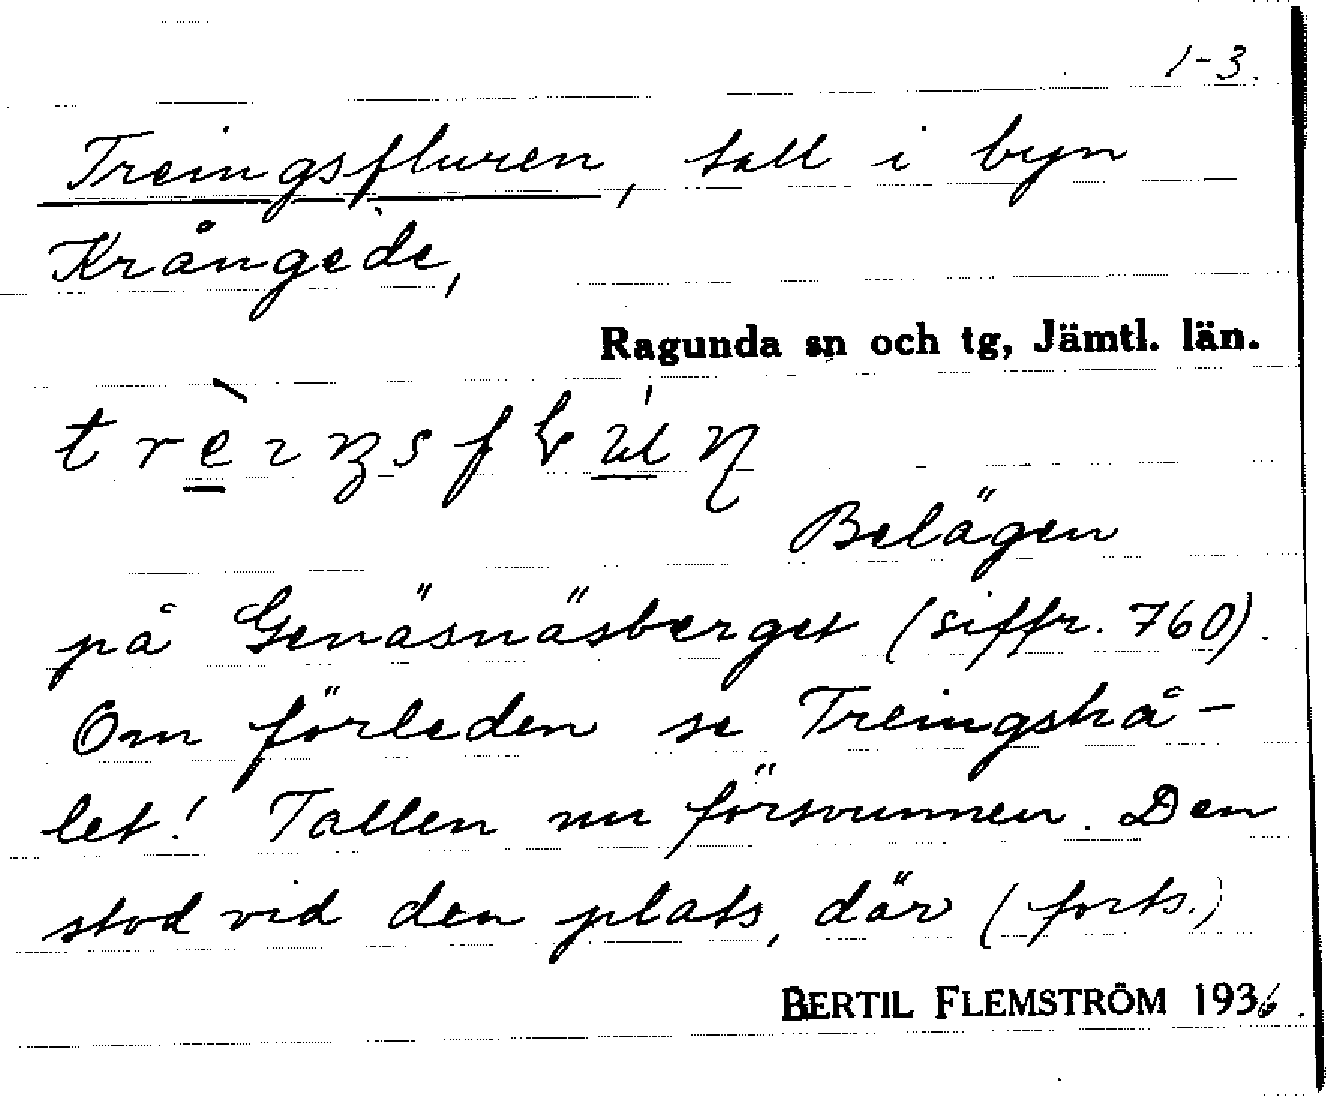 1-3.
Treingsfluren, tall i byn
Krångède,
Ragunda sn och tg, Jämtl. län.
Belägen
på Genäsnäsberget (siffr. 760).
Om förleden se Treingshå-
let! Tallen nu försvunnen. Den
stod vid den plats, där (forts.)
BERTIL FLEMSTRÖM 1936.